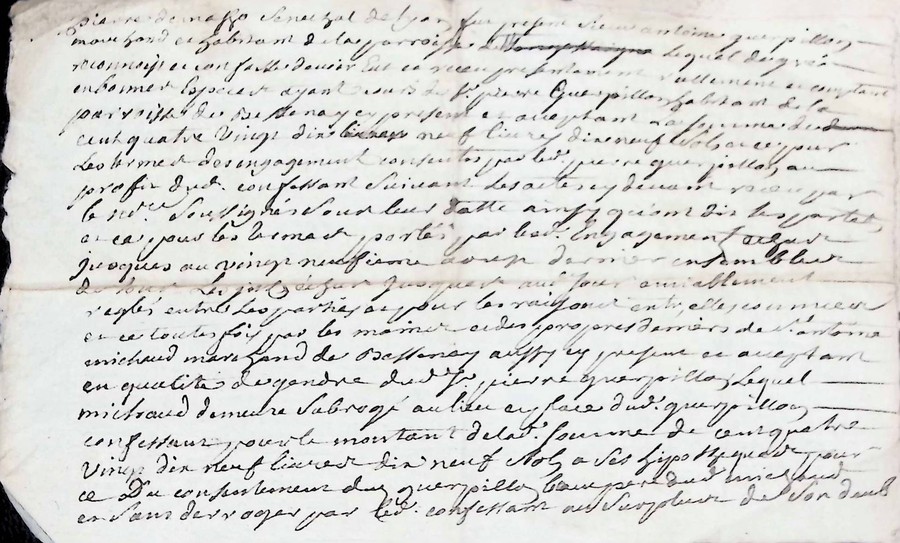 pierre demasso senechal de lyon fut present sieur antoine guerpillon
marchand et habitant de la parroisse d lequel de gré
reconnois et confesse devoir Est ce receu presentement reellement et comptant
en bonnes Espèces ayant cours de Sr. pierre Guerpillon habitant de la
parroisse de Bessenay cy present et acceptant La somme de
cent quatre Vingt dix neuf livres dix neuf sols et ce pour
Les termes desengagement consentes par led. pierre guerpillon au
profit dud. confessant Suivant les actes cy devant receu par
le no.re Soussignés Sous leur datte ainsy qu'ont dit les parties
et ce pour les termes portés par led. Engagement
jusques au vingt neufieme aoust dernier ensemble les
jusques au jour amiablement
reglés entre Les parties et pour les raisons entr'elles connues
et ce toutes fois par les mains et des propres deniers de Sr. antoine
michaud marchand de Bessenay aussy cy present et acceptant
en qualité de gendre dud. Sr. pierre guerpillon Lequel
michaud demeure Subrogé au lieu et place dud. guerpillon
confessant pour le montant de lad. Somme de cent quatre
Vingt dix neuf livres dix neuf Sols a Ses hypotheques pour
ce Du consentement dud guerpillon beaupere dud michaud
en Sans derroger par led. confessant au Surplus de Son deub